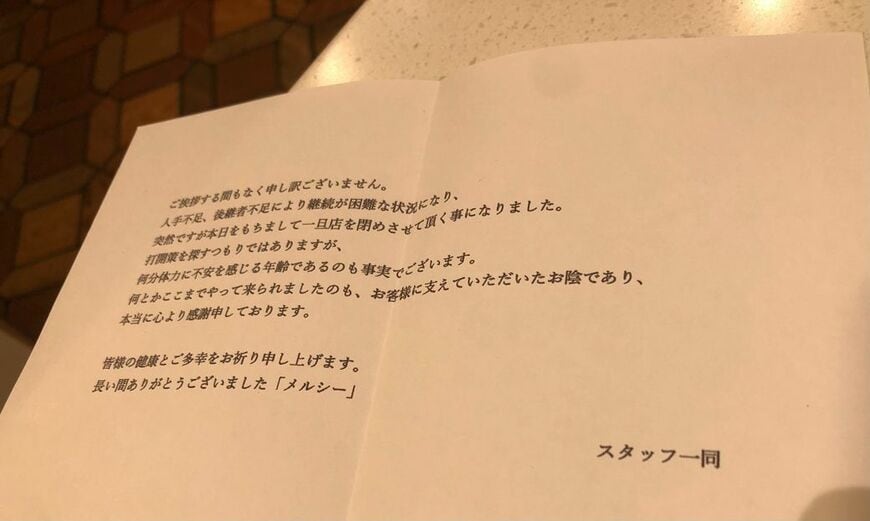 ご挨拶する間もなく申し訳ございません。
人手不足、後継者不足により継続が困難な状況になり、
突然ですが本日をもちまして一旦店を閉めさせて頂く事になりました。
打開策を探すつもりではありますが、
何分体力に不安を感じる年齢であるのも事実でございます。
何とかここまでやって来られましたのも、お客様に支えていただいたお陰であり、
本当に心より感謝申しております。
皆様の健康とご多幸をお祈り申し上げます。
長い間ありがとうございました「メルシー」
スタッフ一同